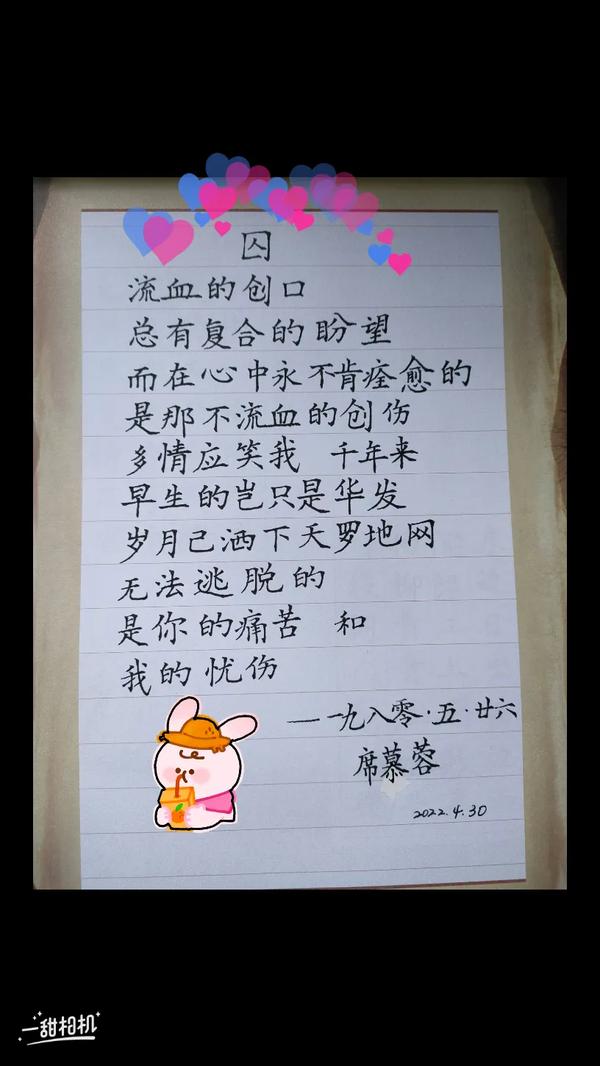 囚
流血的创口
总有复合的盼望
而在心中永不肯痊愈的
是那不流血的创伤
多情应笑我 千年来
早生的岂只是华发
岁月已洒下天罗地网
无法逃脱的
是你的痛苦 和
我的忧伤
—一九八零·五·廿六
席慕蓉
2022.4.30
一甜相机